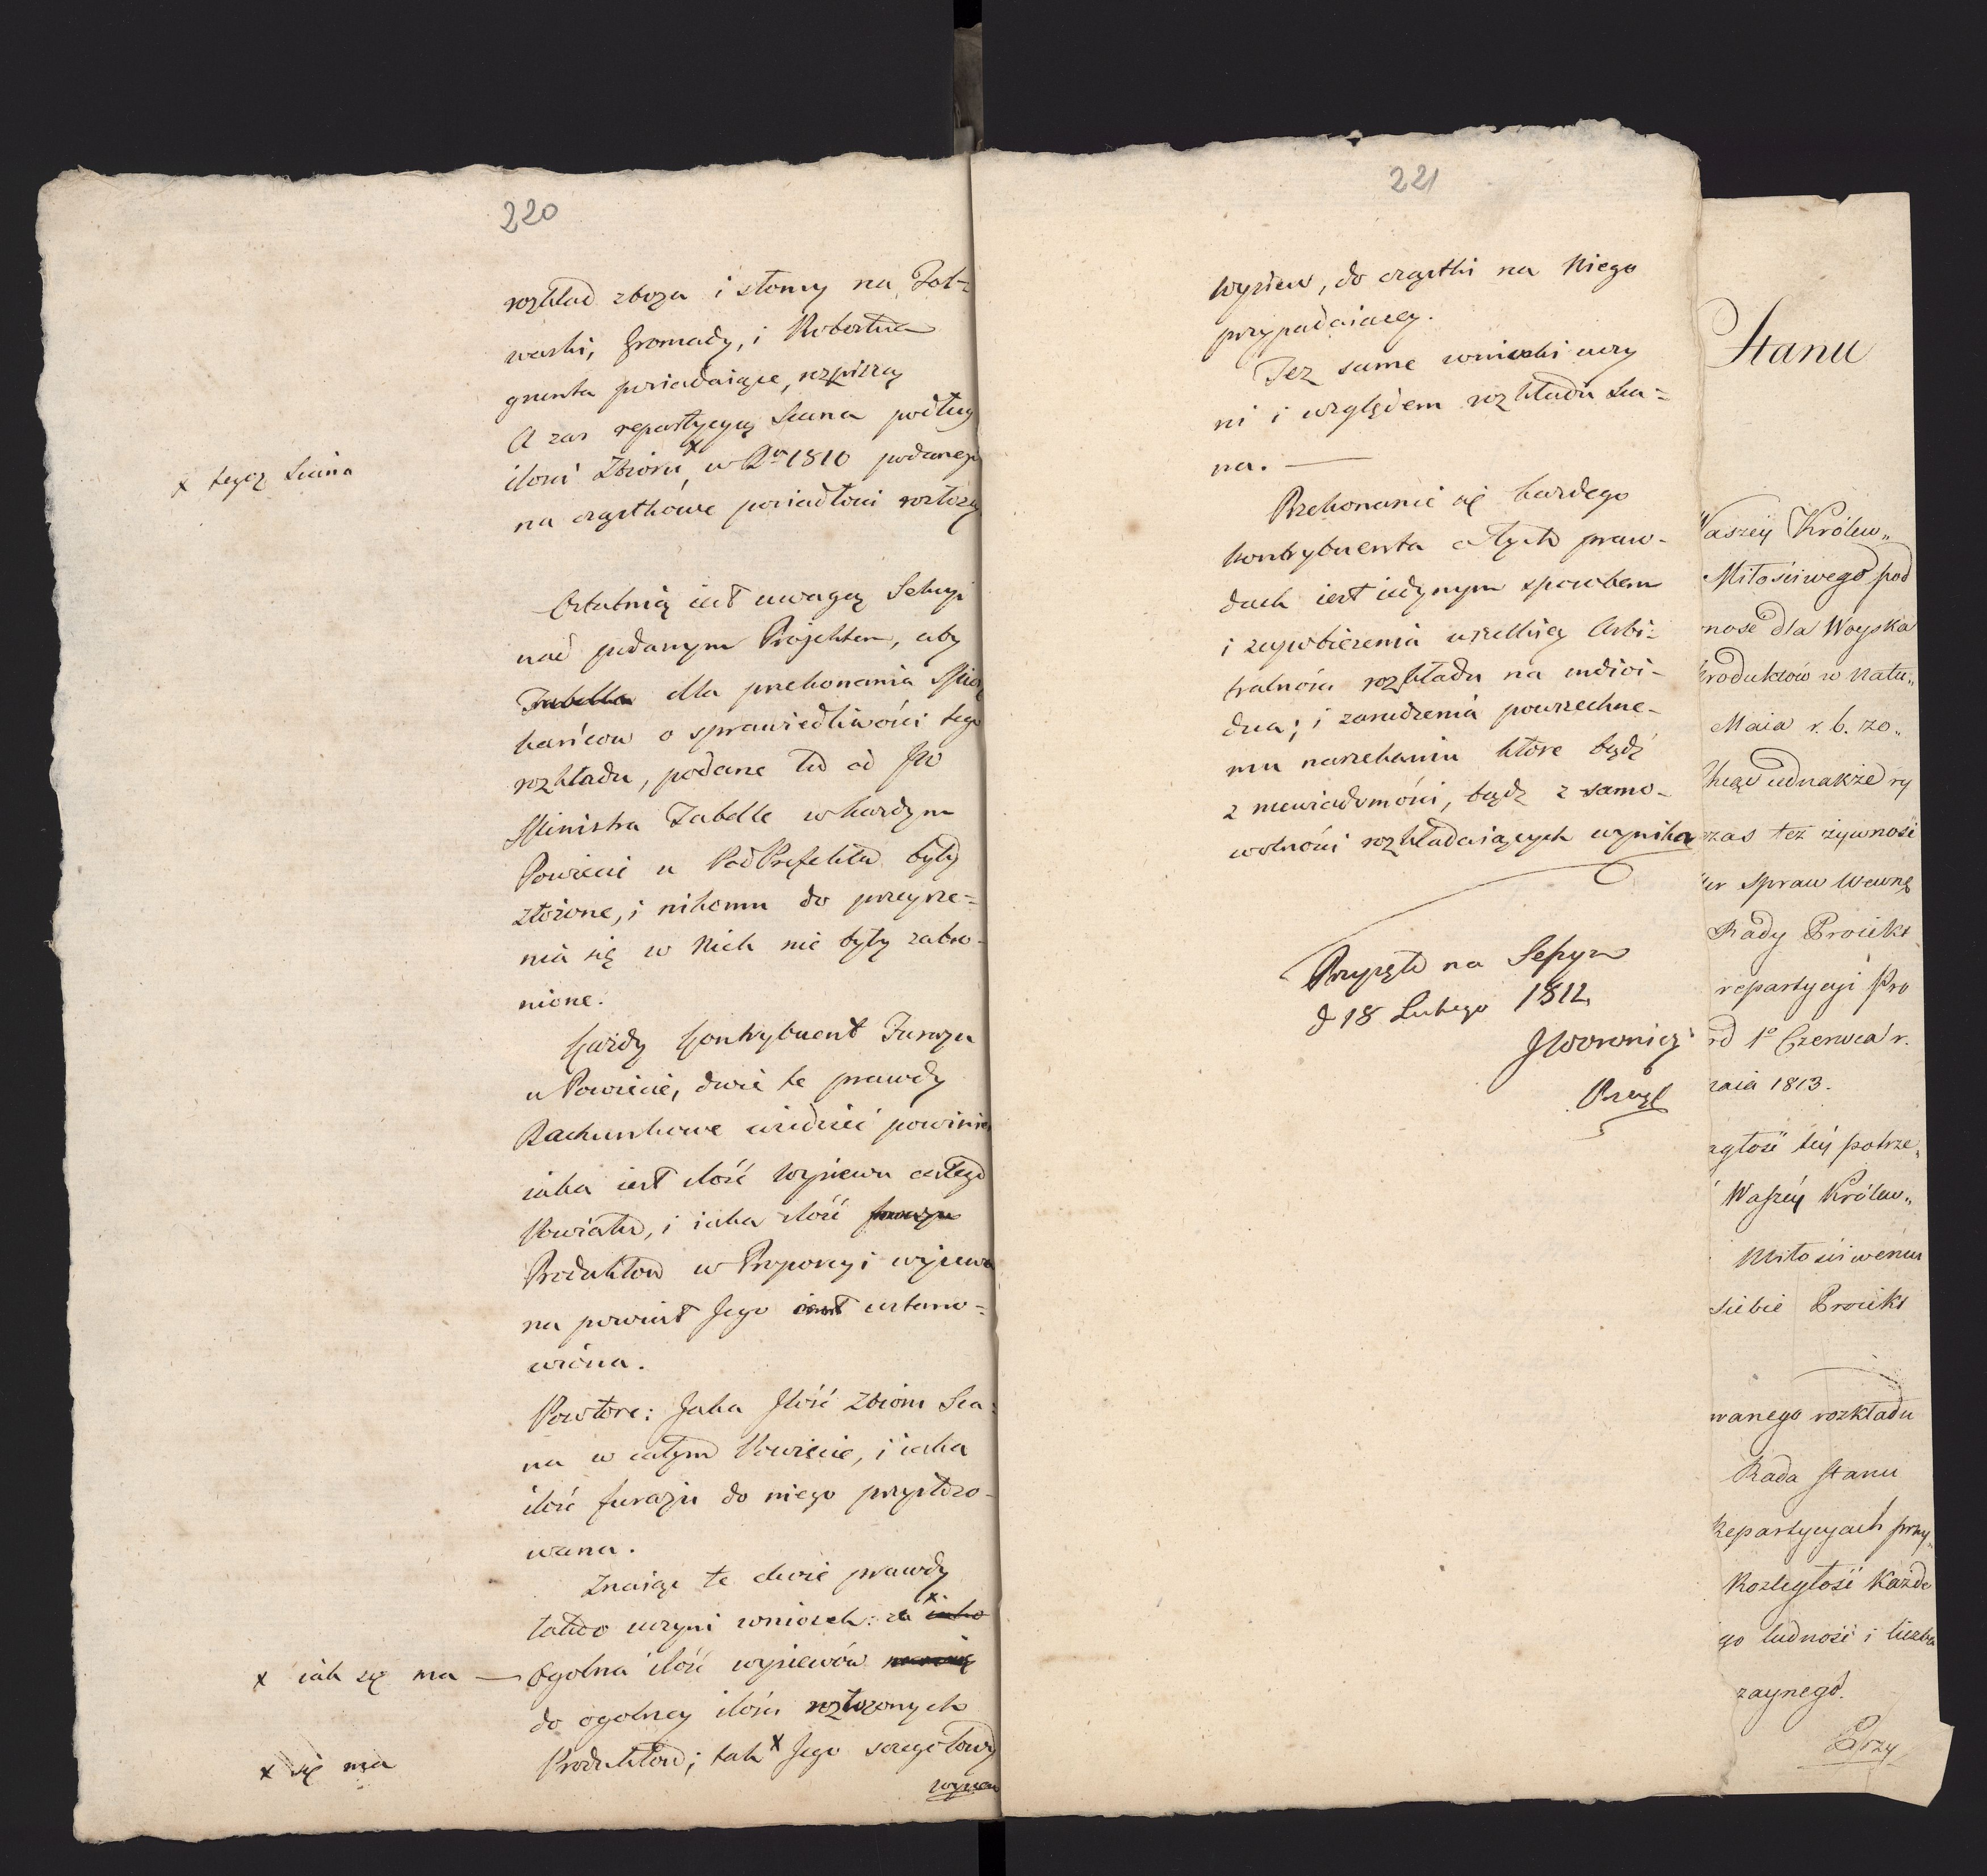 220
rozkład zboża i słomy na Fol=
warki, Gromady, i
grunta posiadaiące, rozpisczą
A zas repartycyą Siana podług
ilosci Zbioru x w Rz 1810 podanego
x tegoż Siana
na cząstkówe posiadłosci rozłożą
Ostatnią iest uwagą Sekcyi
nad podanym Projektem, aby
Tabella dla przekonania Miesz
kańcow o sprawiedliwości tego
rozkładu, podane tu od JW
Ministra Tabelle w każdym
Powiecie u PodPrefekta były
złożone, i nikomu do przeyrze=
nia się w nich nie były zabro-
nione.
Każdy Kontrybuent Furażu
w Powiecie, dwie te prawdy
Rachunkowe wiedzieć powinien
iaka iest ilość wysiewu całego
Powiatu, i iaka ilość furażu
Produktow w Proporcyi wysiewu
na powiat Jego iest ustano=
wióna.
Powtore: Jaka Jlość Zbioru Sia=
na w całym Powiecie, i iaka
ilość furażu do niego przystoso-
wana.
Znaiąc te dwie prawdy
łatwo uczyni wniosek: że x iako
x iak się ma — Ogolna ilość wysiewów
do ogolney ilości rozłożonych
x się ma
Produktow; tak x Jego szczegołowy
wysiew
221
Wysiew, do cząstki na Niego
przypadaiącey.
Też same wnioski uczy
ni i względem rozkładu Sia=
na. —
Przekonanie się każdego
kontrybuenta o tych praw-
dach iest iedynym sposobem
i zapobieżenia wszelkiey Arbi=
tralności rozkładu na indivi-
dua; i zaradzenia powszechne-
mu narzekaniu które bądź
z niewiadomości, bądź z samo-
wolności rozkładaiących wynika
Przyięto na Sessyi
d 18 Lutego 1812.
J Woronicz
Prezyd
Stanu
Waszey Królew„
Miłościwego pod
ność dla Woyska
Produktów w Natu„
Maia r. b. zo„
Chcąc iednakże ry
czas też żywność
ter Spraw Wewnę
Rady Proiekt
repartycyi Pro
od 1º Czerwca r.
maia 1813.
ległość tey potrze„
Waszey Królew„
Miłościwemu
siebie Proiekt
wanego rozkładu
Rada Stanu
Repartycyach przy„
Rozległość Każde
go ludność i liczba
zaynego.
Przy